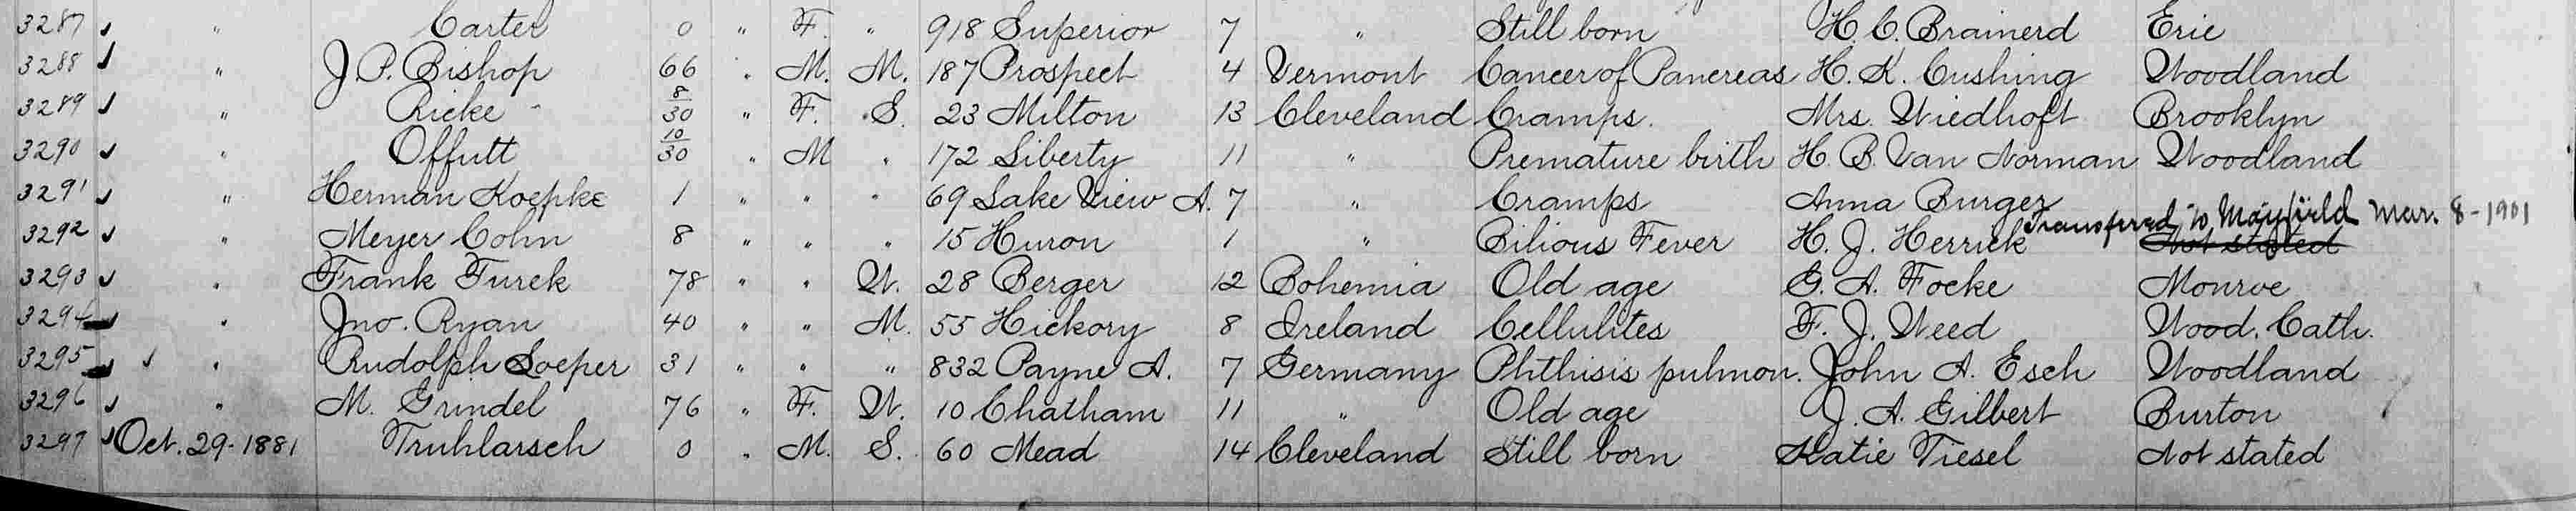 3287 " Carter 0 " F. " 918 Superior 7 " Still born H. C. Brainerd Erie
3288 " J. P. Bishop 66 " M. M. 187 Prospect 4 Vermont Cancer of Pancreas H. K. Cushing Woodland
3289 " Ricke 8/30 " F. S. 23 Milton 13 Cleveland Cramps. Mrs. Wiedhoft Brooklyn
3290 " Offutt 10/30 " M " 172 Liberty 11 " Premature birth H. B. Van Norman Woodland
3291 " Herman Koepke 1 " " " 69 Lake View A. 7 " Cramps Anna Burger
Transferred to Mayfield Mar. 8-1901
3292 " Meyer Cohn 8 " " " 15 Huron 1 " Bilious Fever H. J. Herrick Not stated
3293 " Frank Turek 78 " " W. 28 Berger 12 Bohemia Old age G. A. Focke Monroe
3294 " Jno. Ryan 40 " " M. 55 Hickory 8 Ireland Cellulites F. J. Weed Wood. Cath.
3295 " Rudolph Loeper 31 " " " 832 Payne A. 7 Germany Phthisis pulmon. John A. Esch Woodland
3296 " M. Grindel 76 " F. W. 10 Chatham 11 " Old age J. A. Gilbert Burton
3297 Oct. 29-1881 Truhlarsch 0 " M. S. 60 Mead 14 Cleveland Still born Katie Tiesel Not stated